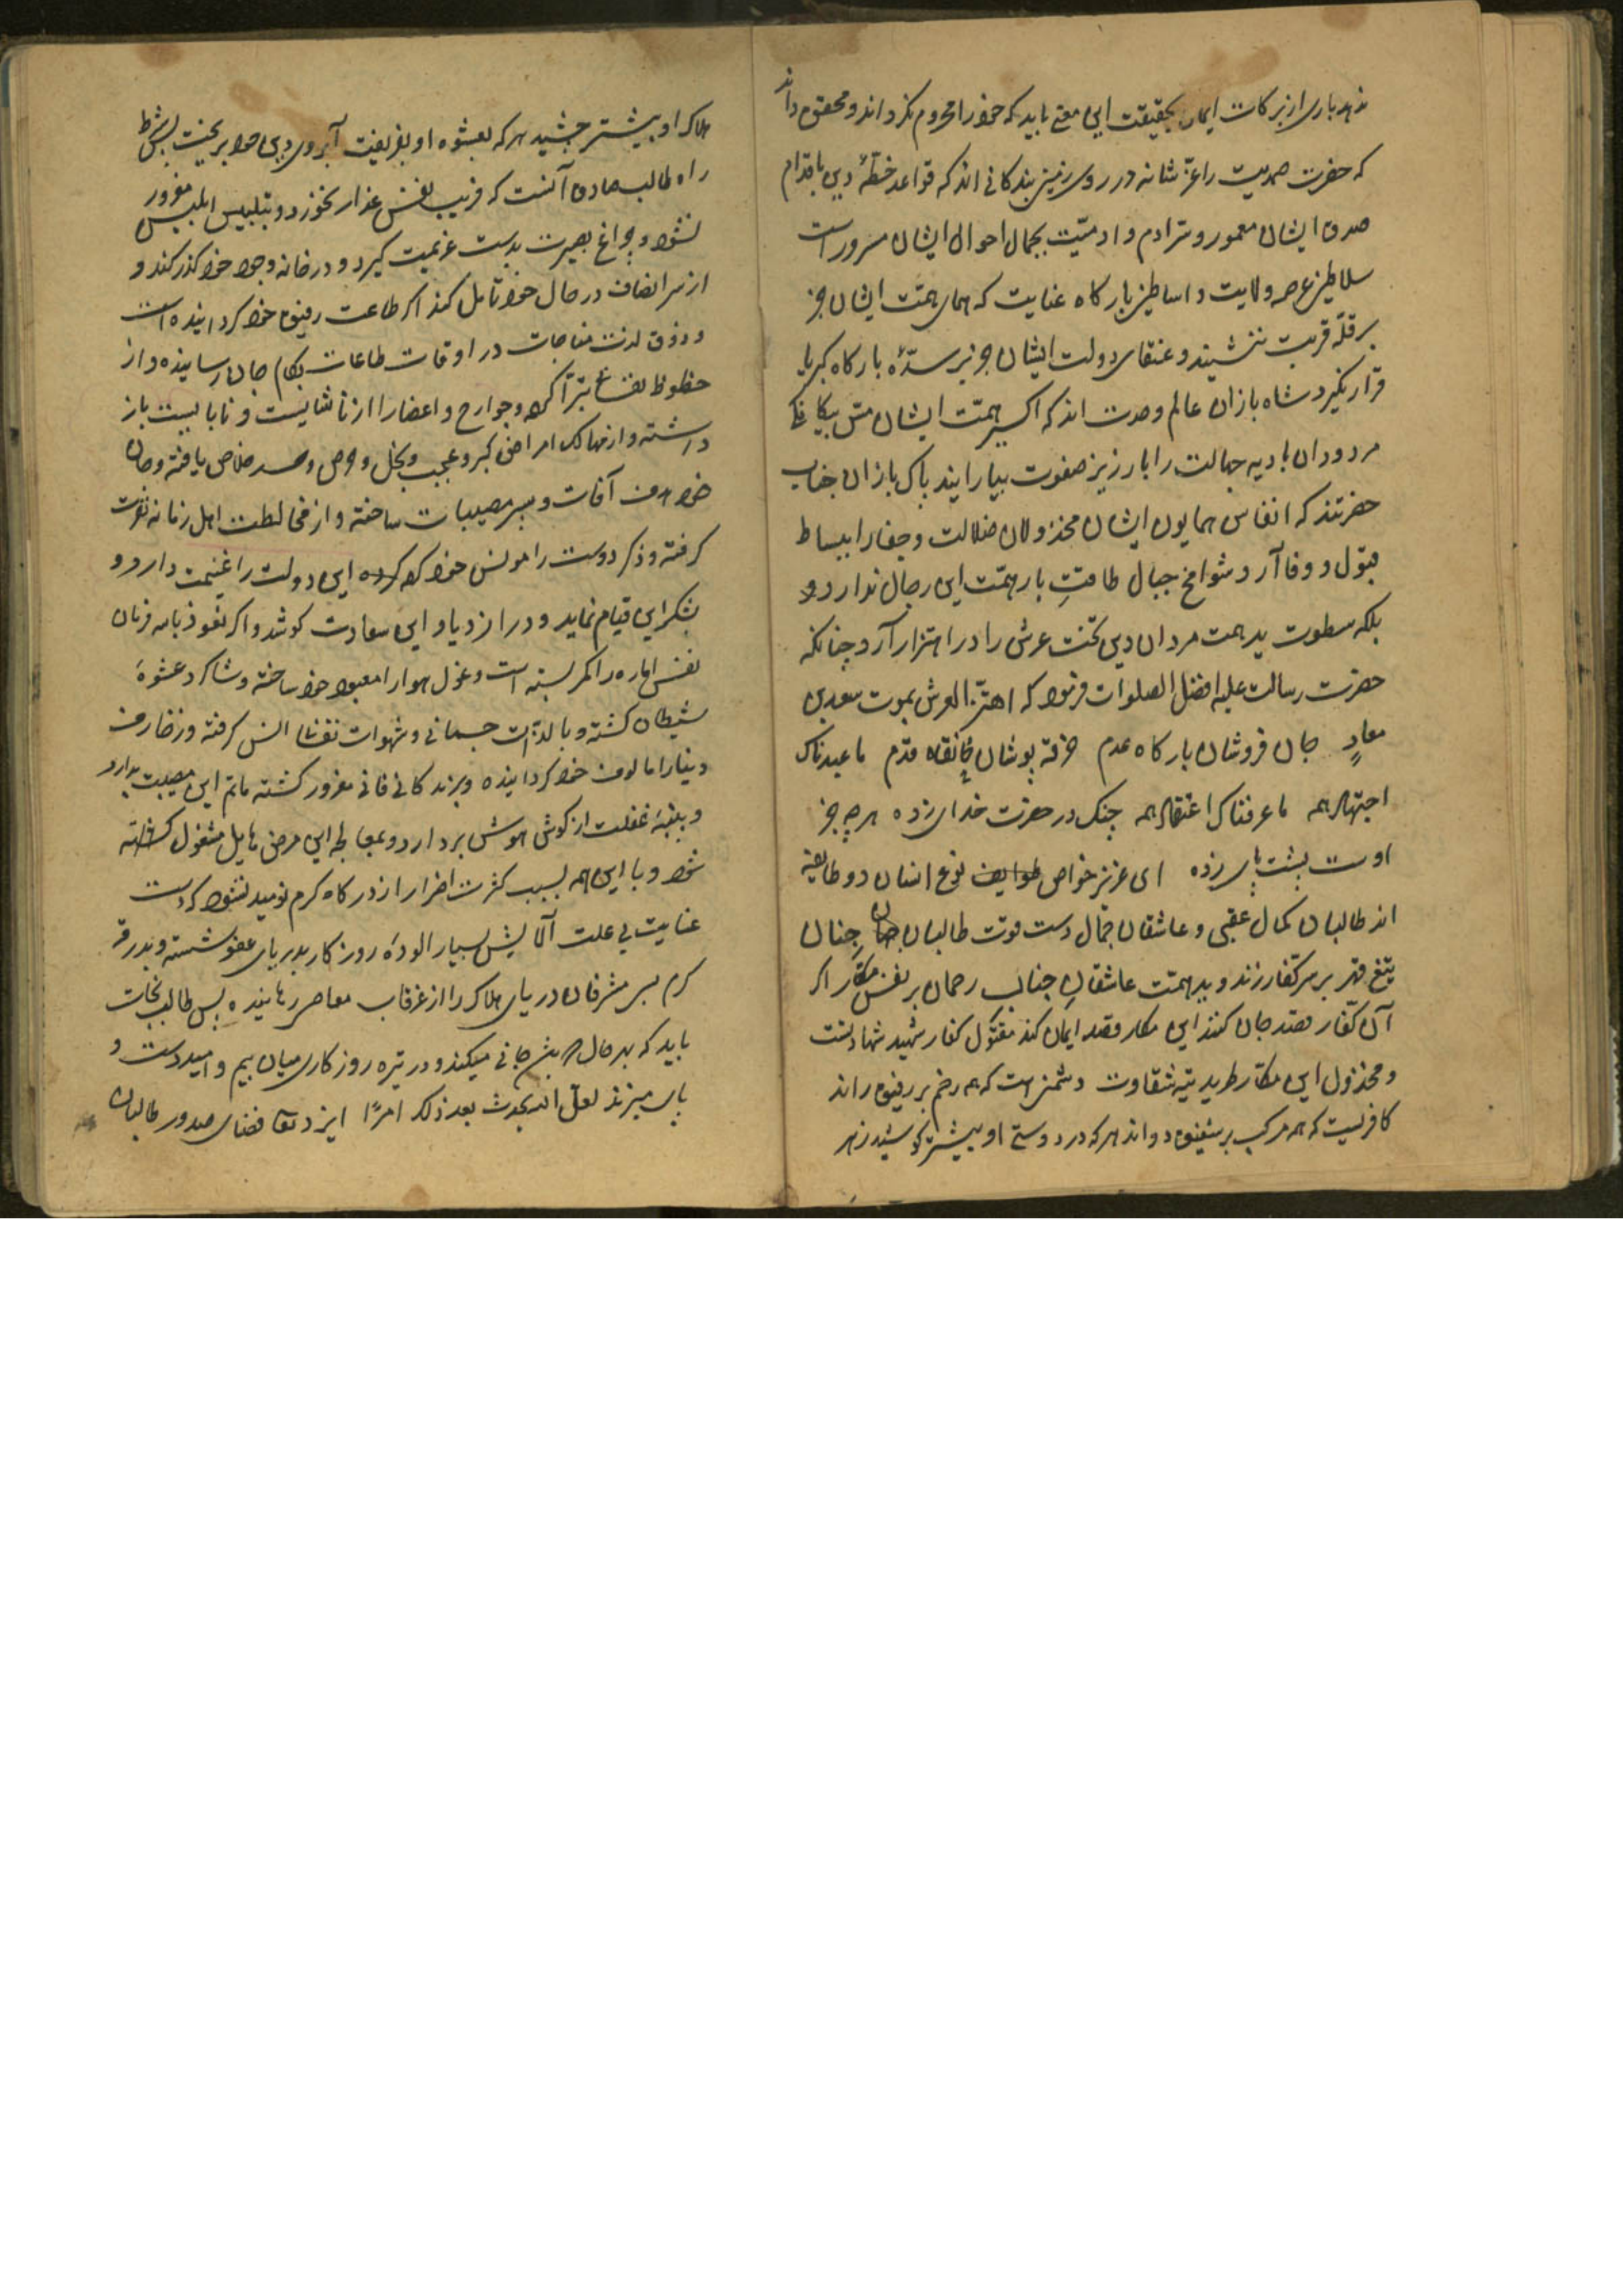 نهد باری از برکات ایمان بحقیقت این معنی باید که خود را محروم نکرداند و محقق داند
که حضرت صمدیت را عزّ شانه در روی زمین بندکانی اند که قواعد خطّهٔ دین باقدام
صدق ایشان معمور و سرّ آدم و ادمیّت بجمال احوال ایشان مسرور است
سلاطین عرصه ولایت و اساطین بارکاه عنایت که همای همّت ایشان جز
بر قلّه قربت ننشیند و عنقای دولت ایشان جز بر سدّهٔ بارکاه کبریا
قرار نکیرد شاه بازان عالم وحدت اند که اکسیر همّت ایشان مس بیکانکی
مردودان بادیه جهالت را بازر زیر صفوت بیارایند پاک بازان جناب
حضرتند که انفاس همایون ایشان مخذولان ضلالت و جفا را ببساط
قبول و وفا آرد شوامخ جبال طاقتِ بار همّت این رجال ندارد و
بلکه سطوت ید همت مردان دین تخت عرش را در اهتزاز آرد چنانکه
حضرت رسالت علیه افضل الصلوات فرمود که اهتزّ العرش بموت سعد بن
معاذٍ جان فروشان بارکاه عدم خرقه پوشان خانقاه قدم ما عبدناک
اجتهاد همه ما عرفناک اعتقاد همه چنک در حضرت خدای زده هر چه جز
اوست پشت پای زده ای عزیز خواص طوایف نوع انسان دو طایفه
اند طالبان کمال عقبی و عاشقان جمال دست قوت طالبان جنان
تیغ قهر بر سر کفار زند و ید همّت عاشقانِ جناب رحمان بر نفس مکّار اکر
آن کفّار قصد جان کنند این مکار قصد ایمان کند مقتول کفار شهید شهادتست
و مخذول این مکّار طرید تیه شقاوت دشمنی است که همه زخم بر رفیق راند
کافریست که همه مرکب بر شفیق دواند هر که در دوستی او بیشتر کوشید زهر
هلاک او بیشتر چشید هر که بعشوه او بفریفت آبروی دین خود بریخت شرط
راه طالب صادق آنست که فریب نفس غدار نخورد و بتلبیس ابلیس مغرور
نشود و چراغ بصیرت بدست عزیمت کیرد و در خانه وجود خود کذر کند و
از سر انصاف در حال خود تامل کند اکر طاعت رفیق خود کردانیده است
و ذوق لذت مناجات در اوقات طاعات بکام جان رسانیده و از
حظوظ نفسانی تبرّا کرده و جوارح و اعضا را از ناشایست و نابایست باز
داشته و از مهالک امراض کبر و عجب و بخل و حرص و حسد خلاص یافته و جان
خود هدف آفات و سپر مصیبات ساخته و از مخالطت اهل زمانه نفرت
کرفته و ذکر دوست را مونس خود کرده این دولت را غنیمت دارد و
بشکر این قیام نماید و در ازدیاد این سعادت کوشد و اکر نعوذ بالله فرمان
نفس اماره را کمر بسته است و غول هوا را معبود خود ساخته و شاکرد عشوهٔ
شیطان کشته و بالذّات جسمانی و شهوات نفسانی انس کرفته و زخارف
دنیا را مالوف خود کردانیده و بزندکانی فانی مغرور کشته ماتم این مصیبت بدارد
و پنبهٔ غفلت از کوش هوش بردارد و بمعالجه این مرض هایل مشغول
شود و با این همه بسبب کثرت اضرار از درکاه کرم نومید نشود که دست
عنایت بی علت آلایش بسیار الودهٔ روزکار بدریای عفو شسته و بدرقه
کرم بسی مشرفان دریای هلاک را از غرقاب معاصی رهانیده پس طالب نجات
باید که بهر حال جانی میکند و در تیره روزکاری میان بیم و امید دست و
پای میزند لعلّ الله یحدث بعد ذلک امرًا ایزد تعالی فضای صدور طالبان